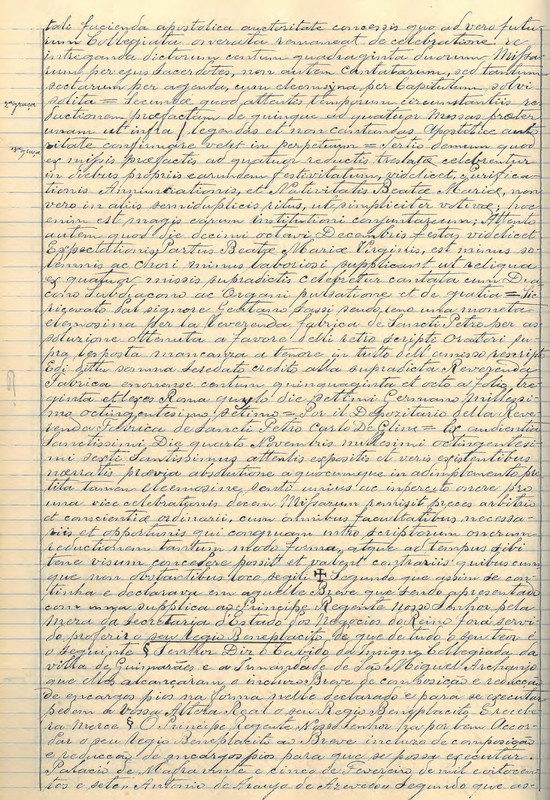 tali facienda apostolica auctoritate concessis quo ad vero futu
rum Collegiata onerata remaneat de celebratione re
integranda dictorum centum quadraginta duorum Missa
rum per ejus sacerdotes, non autem cantatarum, sed tantum
lectarum per agenda, cum eleemosina, per Capitulum solvi
solita = Secundo quod attentis temporum circunstantiis re
ductionem præfactam de quinque ad quatuor Missas præter
unam ut infra / legendas et non cantandas Apostolica aucto
ritate confirmare velit in perpetuum = Tertio demum quod
ex missis præfactis ad quatuor reductis celebrentur
in diebus propriis earundem festivitatum, videlicet, Purifica
tionis Annunciationis, et Nativitatis Beatæ Mariæ, non
vero in aliis semiduplicis ritus, ut simpliciter votivæ; hoc
enim est magis earum institutioni Attento
autem quod die decimi octavi Decembris festas videlicet
Expectationis Partus Beatæ Mariæ Virginis, est minus so
lemnis ac chori minus laboriosi supplicant ut reliqua
ex quatuor missis supradictis celebretur cantata cum Dia
cono Subdiacono ac Organi pulsatione et de gratia =
ricevuto dal signore Gaetano una moneta
elemosina per la Reverenda fabrica de Sancti Petro per as
soluzione ottenuta a favore delli retro scripti Oratori su
pra l'esposta mancanza a tenore in tutto dell'
Edi dittu somma credito alla supradicta Reverenda
Fabrica centum quinquaginta et octo a folio tre
ginta et Roma questo die Settimi Millessi
mo octingentesimo settimo = Por il Depozitario della Reve
renda Fabrica de Sancti Petro Carlo = Ex audientia
Sanctissimi Die quarto Novembris millesimi octingentesi
mi sexti Sanctissimus attentis expositis et veris existentibus
narratis prævia absolutione a quocumque inadimplemento præ
tita tamen eleemosine
una vice celebrationis decem Missarum remisit preces arbitrio
et conscientiæ ordinarii, cum omnibus facultatibus necessa
riis et opportunis qui congruam intro scriptorum onerum
reductionem tantum modo forma, atque ad tempus sibi
bene visum concedere possit et valeat contrariis quibuscum
que non obstantibus loco segilli ✠ Segundo que assim se con
tinha e declarava em aquelle Breve que sendo apresentado
com uma supplica ao Principe Regente Nosso Senhor pela
Meza da Secretaria d'Estado dos Negocios do Reino fora servi
do proferir o seu Regio Beneplacito de que de tudo o seu teor é
o seguinte § Senhor Diz o Cabido da Insigne Collegiada da
villa de Guimarães e a Irmandade de São Miguel Archanjo
que Elles alcançaram o incluso Breve de composição e reducção
de encargos pios na forma nelle declarado e para se executar
pedem a Vossa Alteza Real o seu Regio Beneplacito E recebe
rá Merce § O Principe Regente Nosso Senhor ha por bem Accor
dar o seu Regio Beneplacito ao Breve incluso de composição
e reducção de encargos pios para que se possa executar.
Palacio de Mafra vinte e cinco de Fevereiro de mil oitocen
tos e sete, Antonio de Araujo de Azevedo, segundo que as-